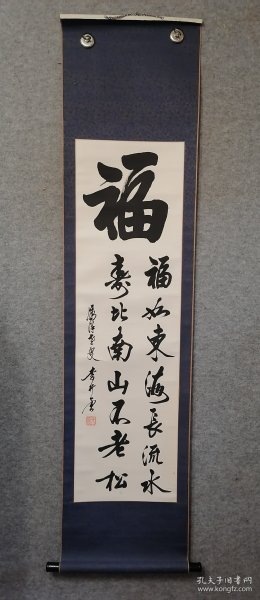 福
福如東海長流水
壽比南山不老松
孔夫子旧书网
www.kongfz.com